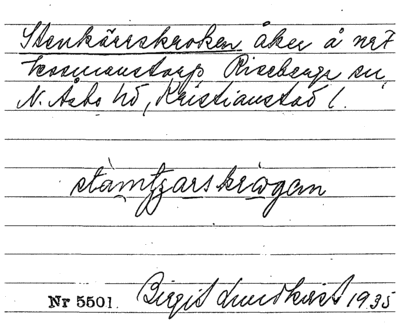 Stenkärrskroken åker å nr 7
Kosmanstorp Riseberga sn,
N. Åsbo hd, Kristianstad l.
stämtjarskrogen
Nr 5501. Birgit Lundkvist 1935